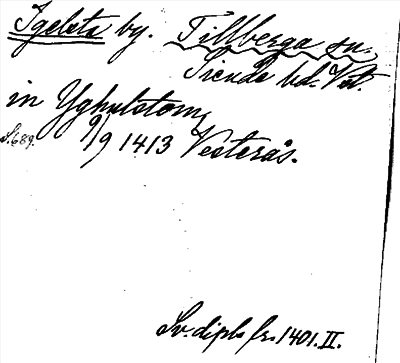 Igelsta by. Tillberga sn.
Siende hd. Vst.
in Yghulstom
S. 689.
9/9 1413 Vesterås.
Sv. dipl. fr. 1401. II.